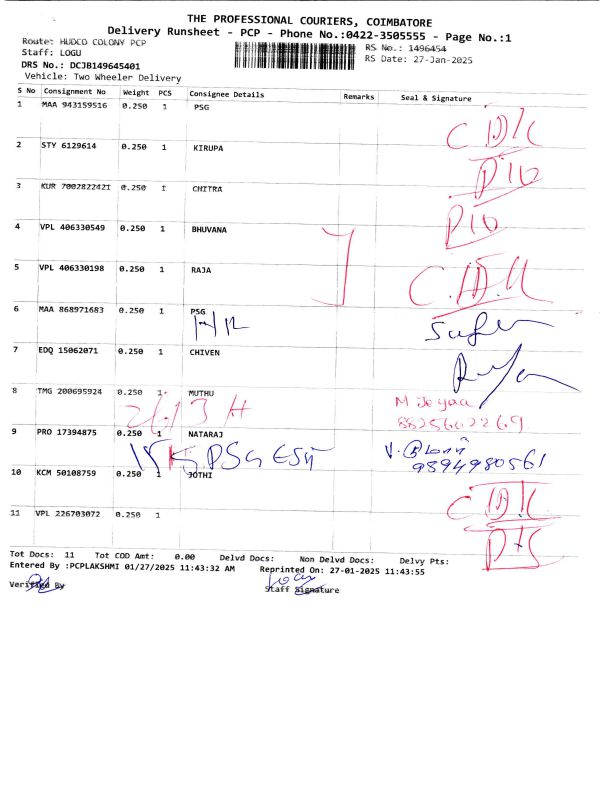 THE PROFESSIONAL COURIERS, COIMBATORE
Delivery Runsheet - PCP - Phone No.:0422-3505555 - Page No.:1
Route: HUDCO COLONY PCP
RS No.: 1496454
Staff: LOGU
RS Date: 27-Jan-2025
DRS No.: DCJB149645401
Vehicle: Two Wheeler Delivery
S No Consignment No Weight PCS Consignee Details Remarks Seal & Signature
1 MAA 943159516 0.250 1 PSG
2 STY 6129614 0.250 1 KIRUPA
3 KUR 7002822421 0.250 1 CHITRA
4 VPL 406330549 0.250 1 BHUVANA
5 VPL 406330198 0.250 1 RAJA
6 MAA 868971683 0.250 1 PSG
7 EDQ 15062071 0.250 1 CHIVEN
8 TMG 200695924 0.250 1 MUTHU
9 PRO 17394875 0.250 1 NATARAJ
9894980561
10 KCM 50108759 0.250 1 JOTHI
11 VPL 226703072 0.250 1
Tot Docs: 11 Tot COD Amt: 0.00 Delvd Docs: Non Delvd Docs: Delvy Pts:
Entered By :PCPLAKSHMI 01/27/2025 11:43:32 AM Reprinted On: 27-01-2025 11:43:55
Verified By
Staff Signature